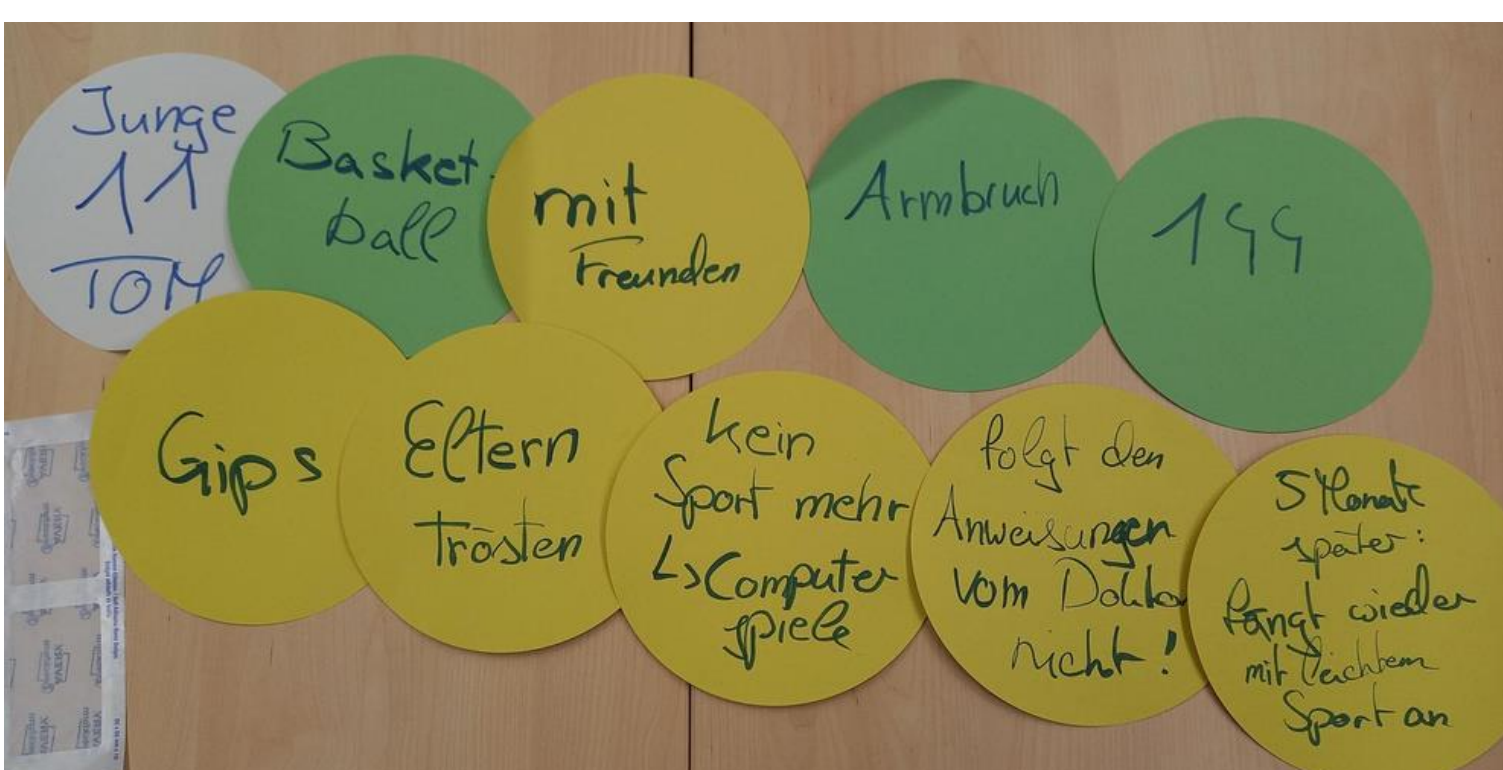 Junge
11
TOM
Basket-
ball
mit
Freunden
Armbruch
144
Gips
Eltern
trösten
kein
Sport mehr
↳ Computer
spiele
folgt den
Anweisungen
vom Doktor
nicht!
5 Monate
später:
fängt wieder
mit leichtem
Sport an